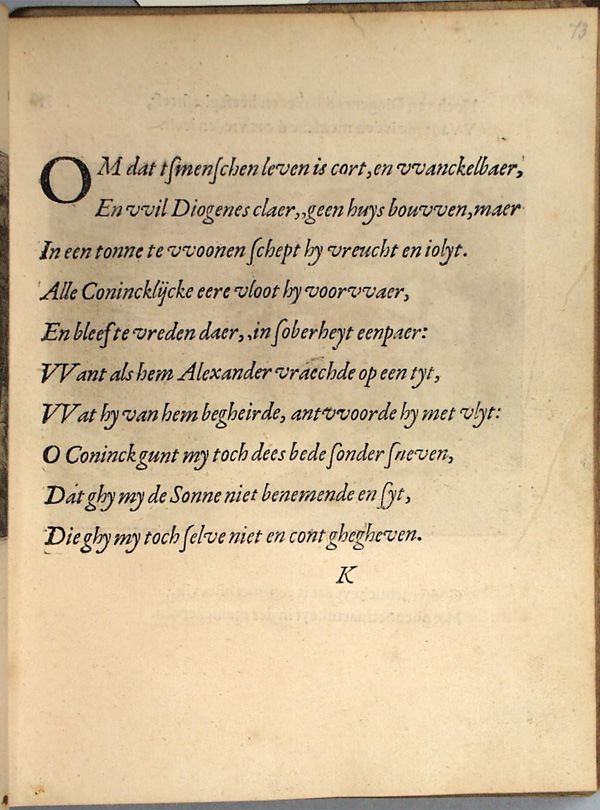 73
OM dat tſmenſchen leven is cort, en vvanckelbaer,
En vvil Diogenes claer,,geen huys bouvven, maer
In een tonne te vvoonen ſchept hy vreucht en iolyt.
Alle Conincklijcke eere vloot hy voorvvaer,
En bleef te vreden daer,,in ſoberheyt eenpaer:
VVant als hem Alexander vraechde op een tyt,
VVat hy van hem begheirde, antvvoorde hy met vlyt:
O Coninck gunt my toch dees bede ſonder ſneven,
Dat ghy my de Sonne niet benemende en ſyt,
Die ghy my toch ſelve niet en cont ghegheven.
K